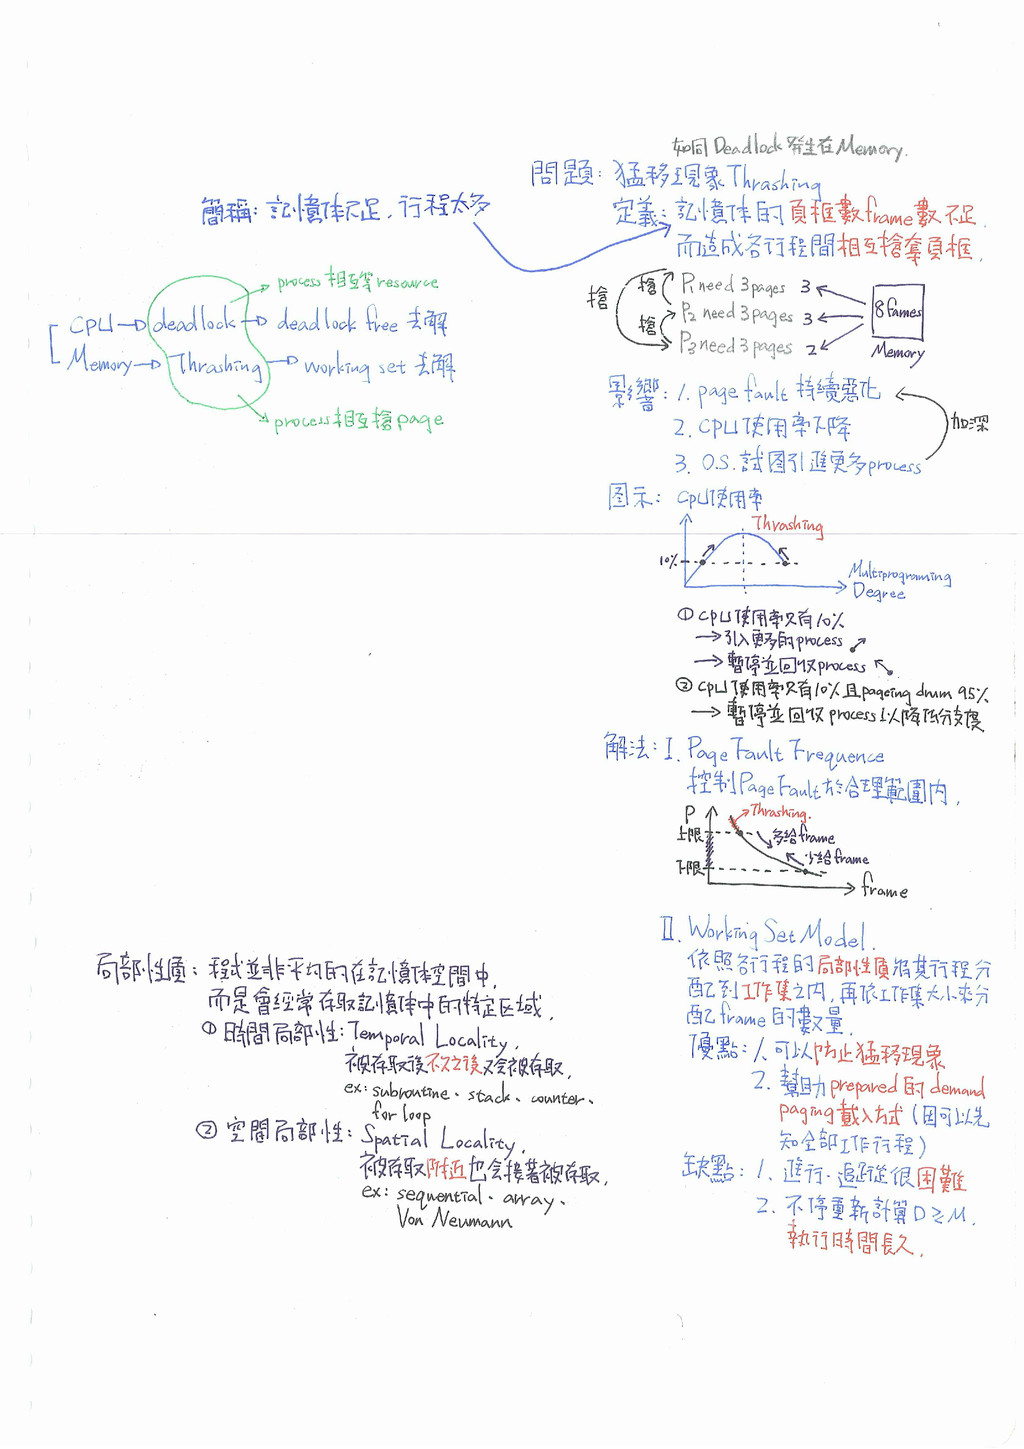 如同Deadlock發生在Memory.
問題：猛移現象Thrashing
簡稱：記憶体不足，行程太多
定義：記憶体的頁框數frame數不足，
而造成各行程間相互搶奪頁框．
process相互等resource
CPU→deadlock→deadlock free 去解
Memory→Thrashing→working set 去解
process相互搶page
搶 搶 P1 need 3 pages 3
搶 P2 need 3 pages 3
P3 need 3 pages 2
8 fames
Memory
影響：1. page fault 持續惡化
2. CPU使用率下降
3. O.S.試图引進更多process
加深
图示：CPU使用率
Thrashing
10%
Multiprograming
Degree
① CPU使用率只有10%
→引入更多的process
→暫停並回收process
② CPU使用率只有10%且pageing drum 95%
→暫停並回收process以降低分支度
解法：I. Page Fault Frequence
控制Page Fault於合理範圍內，
P
Thrashing.
上限
多給frame
少給frame
下限
frame
II. Working Set Model.
依照各行程的局部性質將其行程分
配到工作集之內，再依工作集大小來分
配frame的數量．
優點：1. 可以防止猛移現象
2. 幫助prepared的demand
paging載入方式（因可以先
知全部工作行程）
缺點：1. 進行．追蹤從很困難
2. 不停重新計算D≥M．
執行時間長久．
局部性質：程式並非平均的在記憶体空間中，
而是會經常存取記憶体中的特定区域．
① 時間局部性：Temporal Locality，
被存取後不久之後又會被存取．
ex: subroutine、stack、counter、
for loop
② 空間局部性：Spatial Locality，
被存取附近也会接著被存取．
ex: sequential、array、
Von Neumann